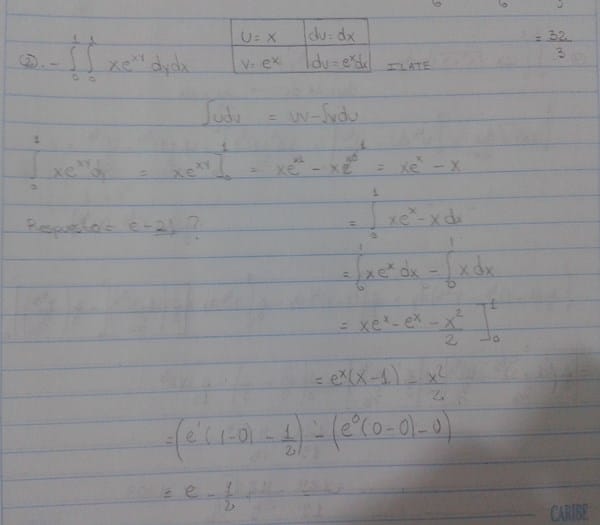 u = x du = dx = 32/3
②. - ∫₀¹ ∫₀¹ xe^xy dydx v = e^x dv = e^x dx ILATE
∫udv = uv - ∫vdu
∫₀¹ xe^xy dy = xe^xy ]₀¹ = xe^x1 - xe^x0 = xe^x - x
Respuesta = e - 2½ ? = ∫₀¹ xe^x - x dx
= ∫₀¹ xe^x dx - ∫₀¹ x dx
= xe^x - e^x - x²/2 ]₀¹
= e^x(x-1) - x²/2
= (e¹(1-0) - 1/2) - (e⁰(0-0) - 0)
= e - 1/2
CARIBE